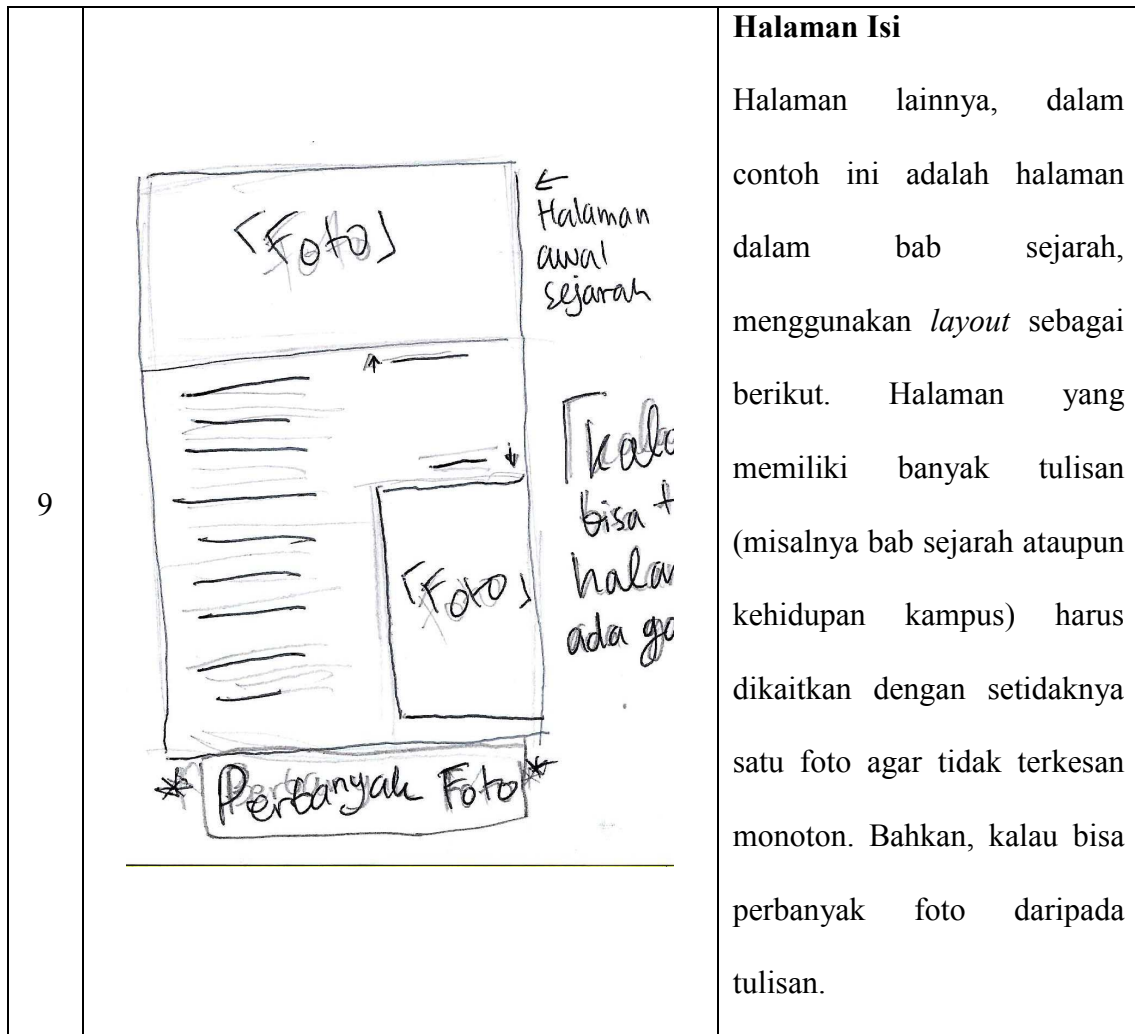 9
「Foto」
←
Halaman
awal
sejarah
「Foto」
「kalo
bisa t
hala
ada ga
* Perbanyak Foto *
Halaman Isi
Halaman lainnya, dalam
contoh ini adalah halaman
dalam bab sejarah,
menggunakan layout sebagai
berikut. Halaman yang
memiliki banyak tulisan
(misalnya bab sejarah ataupun
kehidupan kampus) harus
dikaitkan dengan setidaknya
satu foto agar tidak terkesan
monoton. Bahkan, kalau bisa
perbanyak foto daripada
tulisan.